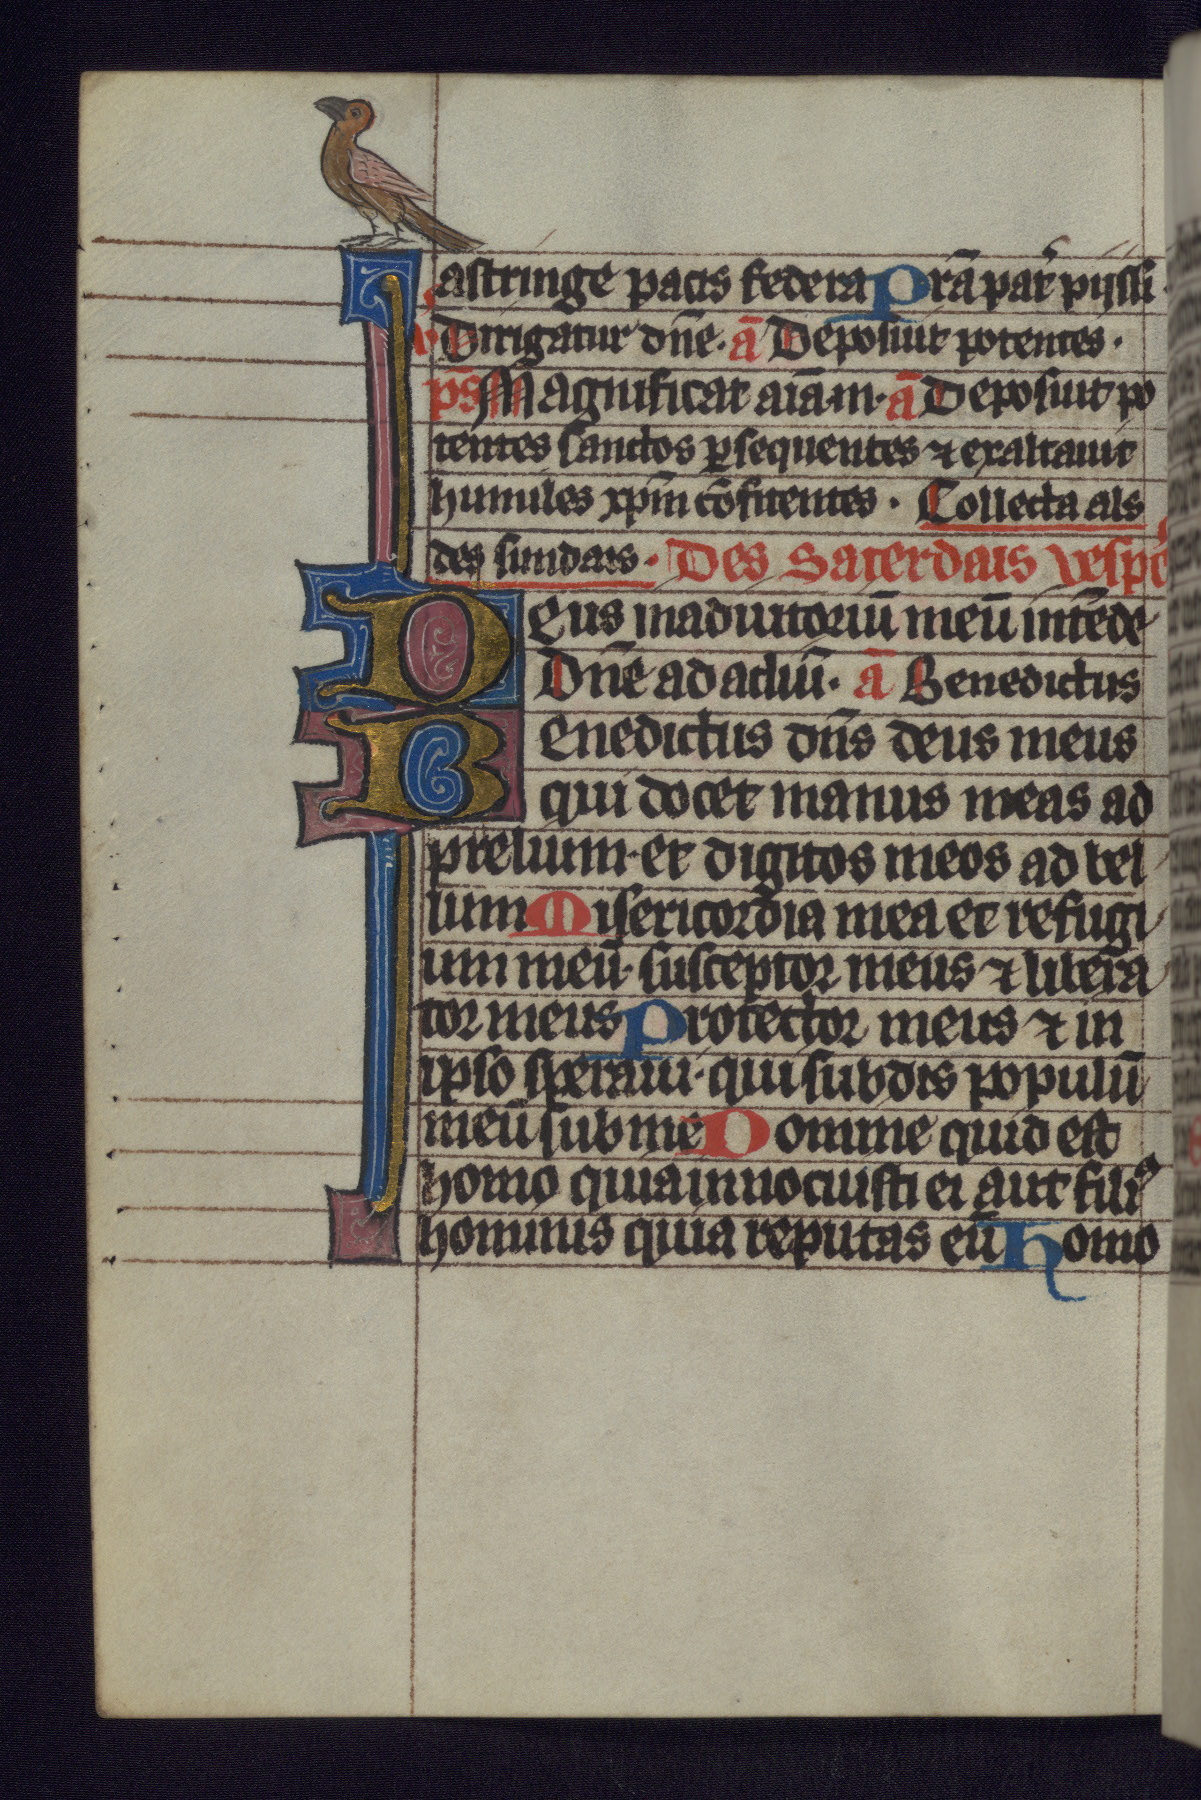 astringe pacis federa Prā patr̄ pijssi
Dirigatur dn̄e. ā Deposuit potentes.
ps̄ Magnificat aīa.m. ā Deposuit po
tentes sanctos ꝑsequentes ⁊ exaltauit
humiles xp̄m cōfitentes. Collecta als
des sundais. Des Saterdais vesp̄e
Deus inadiutoriū meū intēde
Dn̄e ad adiuū. ā Benedictus
Benedictus dn̄s deus meus
qui docet manus meas ad
prelium. et digitos meos ad bel
lum Misericordia mea et refugi
um meū. susceptor meus ⁊ libera
tor meus Protector meus ⁊ in
ipso speraui. qui subdis populū
meū sub me Domine quid est
homo quia innotuisti ei aut fili⁹
hominis quia reputas eū Homo